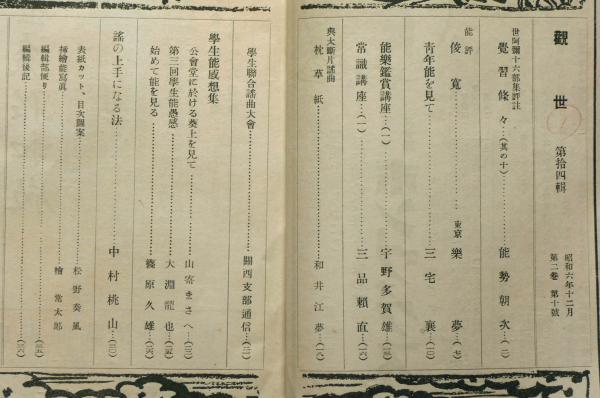 觀世
第拾四輯
昭和六年十二月
第二卷 第十號
世阿彌十六部集評註
覺習條々…(其の十)… 能勢朝次…(二)
能評
俊寬… 東京 樂夢…(七)
青年能を見て… 三宅襄…(一〇)
能樂鑑賞講座…(一)… 宇野多賀雄…
常識講座…(一)… 三品賴直…(一六)
與太斷片謠曲
枕草紙… 和井江夢…(一八)
學生聯合謠曲大會… 關西支部通信…
學生能感想集
公會堂に於ける葵上を見て… 山嵜まさへ…
第三回學生能愚感… 大淵龍也…
始めて能を見る… 篠原久雄…
謠の上手になる法… 中村桃山…
表紙カット、目次圖案… 松野奏風
挿繪能寫眞… 檜常太郎
編輯部便り…
編輯後記…